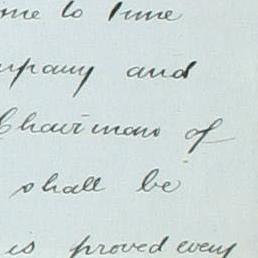 me to time
mpany and
Chairman of
shall be
is proved every